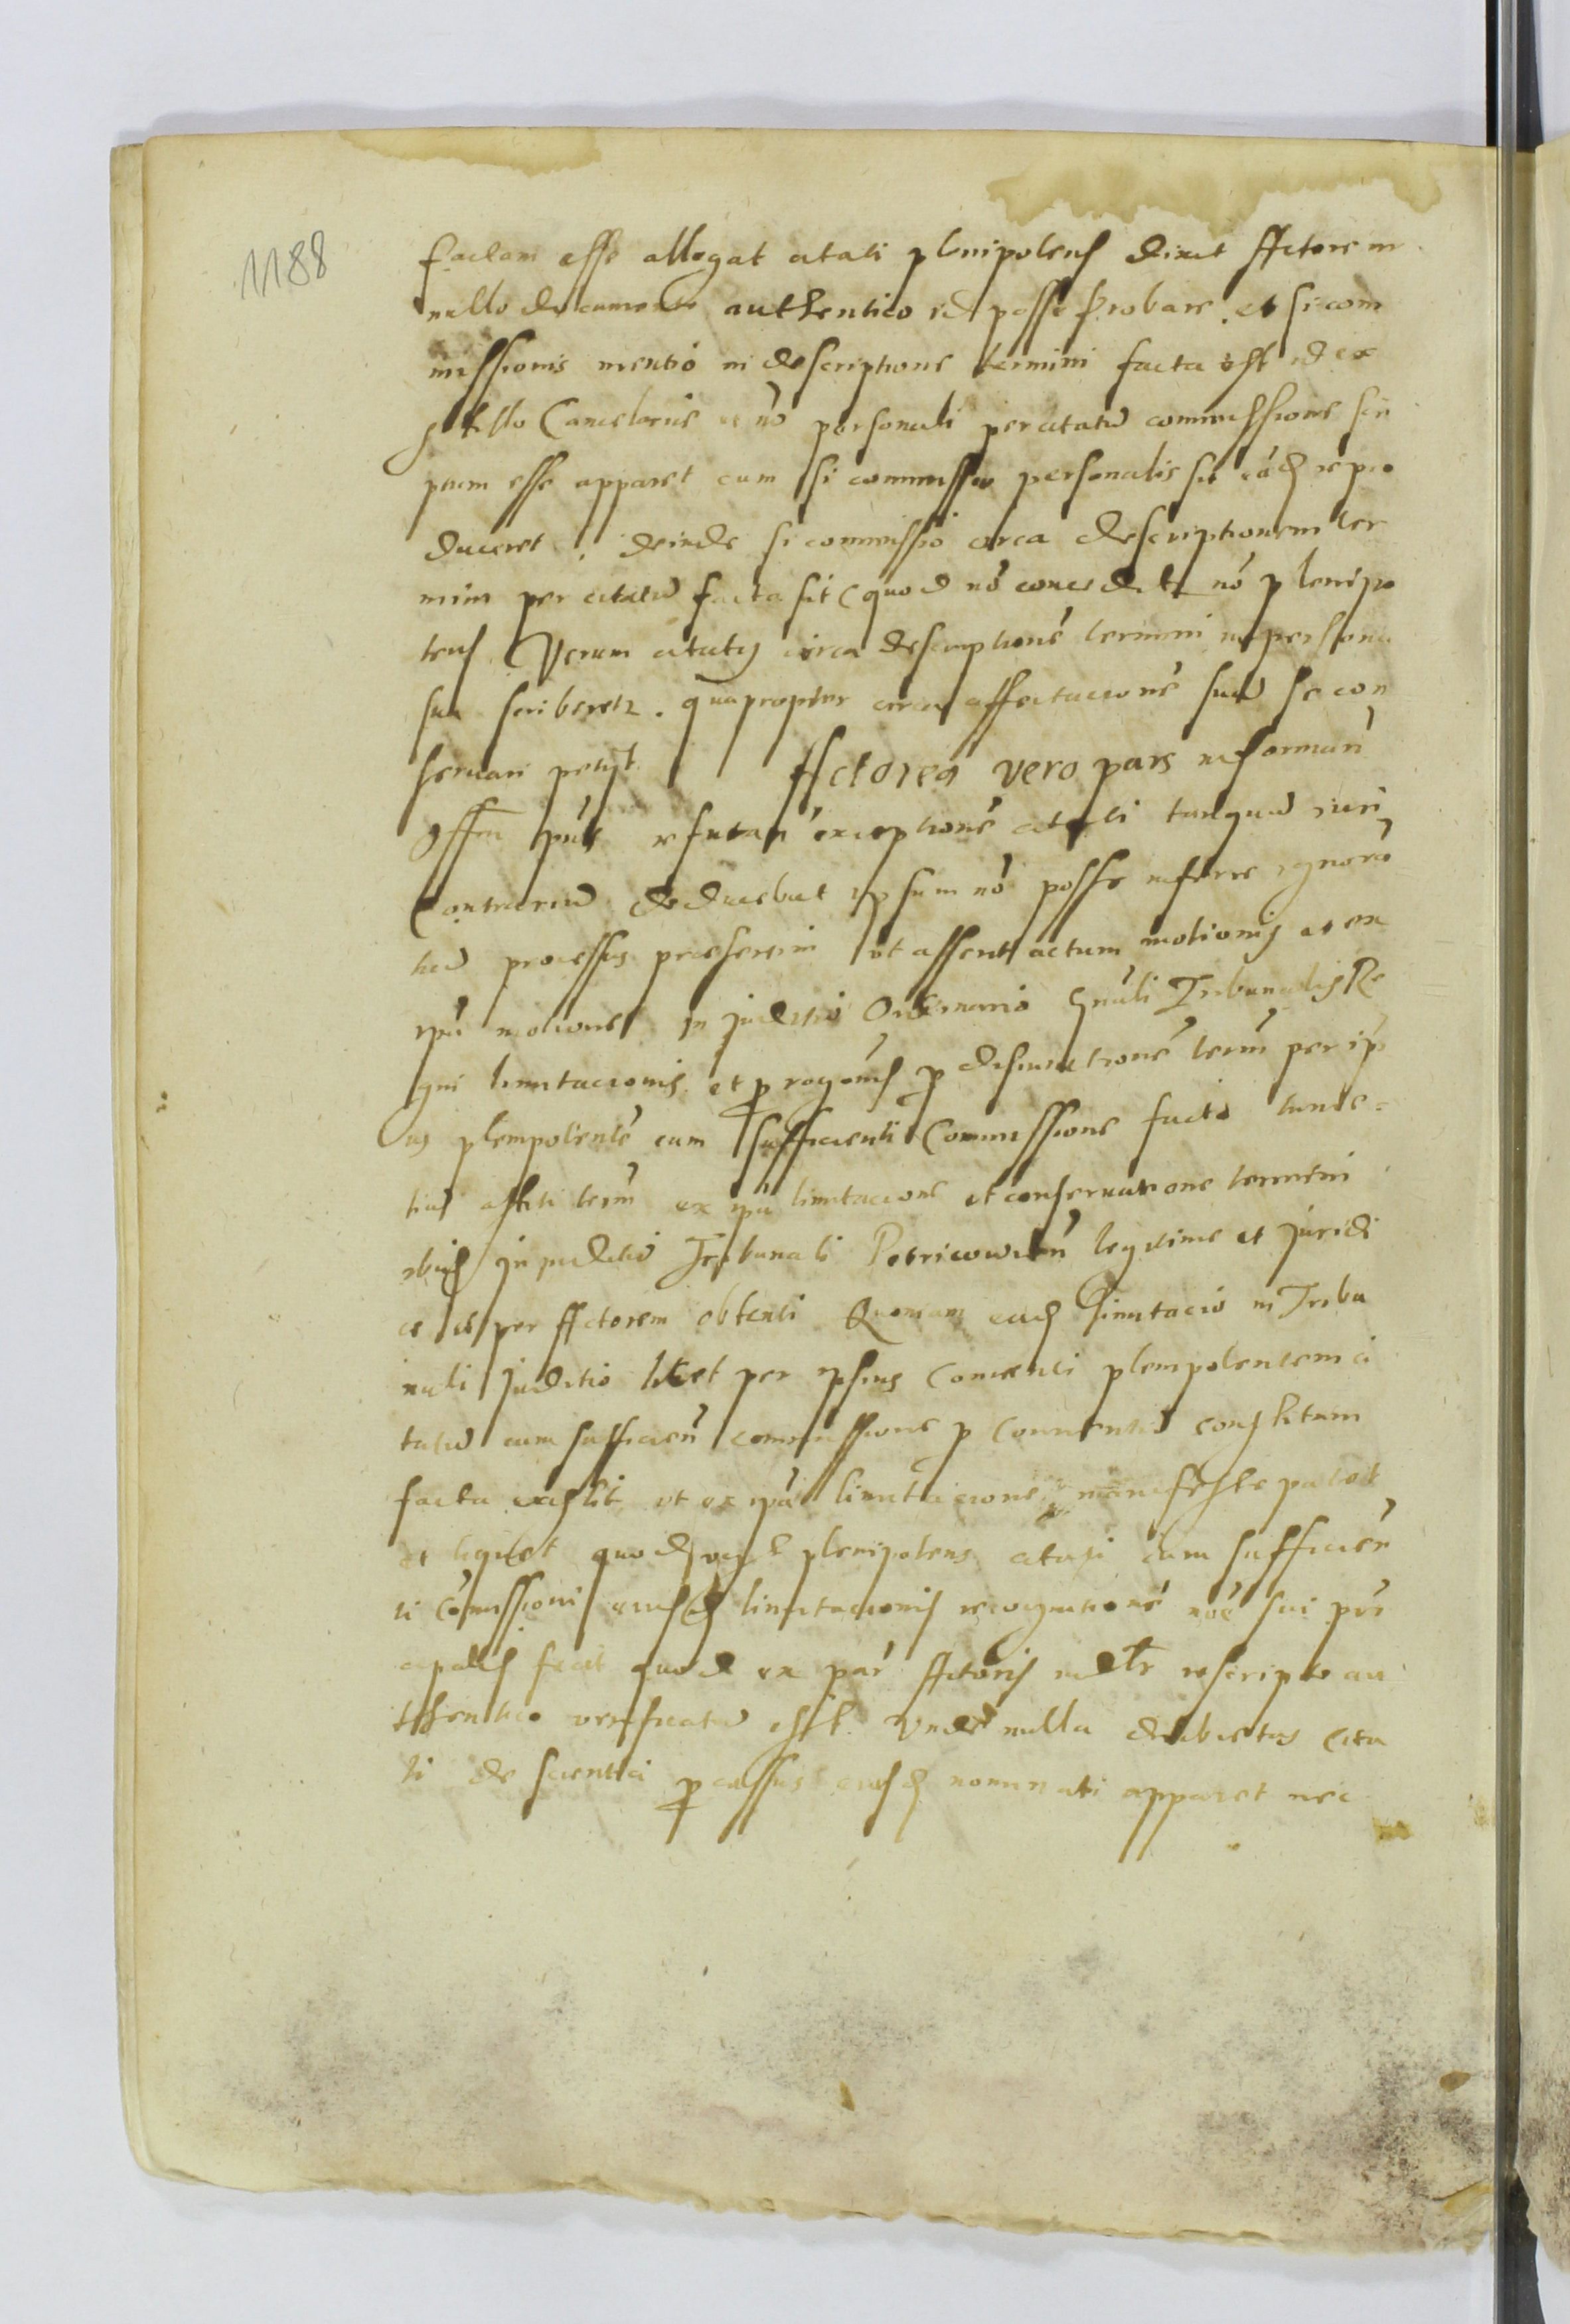 1188
factam esse allegat citati plenipotens dixit Actorem
nullo documento authentico id posse probare. et si com
missionis mentio in descriptione termini facta est id ex
stillo Cancelariae et nō personali per citatū commissione scri
ptum esse apparet cum si commissio personalis sit eād repro
duceret. deinde si commissio circa descriptionem ter
mini per citatū facta sit (quod nō conceditr nō plenipo
tens Verum citatus circa descriptionē termini in persona
sua scriberetr. quapropter circa affectacionē suā se con
servari petyt. Actorea vero pars informan
offm pns refutan exceptionē citati tanquā iuri
Contrariā deducebat ipsum nō posse inferre ignoran
tiā processus praesertim ut assent actum motionis et ex
ipa motione in juditio Ordinario Gnali Tribunalis Re
gni limitacionis et prorogonis p disiunctionē term per ip
ius plenipotentē cum sufficienti Commissione facta
ex ipa limitacione et conservatione termini
ibid in juditio Tribunali Petricowien legitime et juridi
ce per Actorem obtenti Quoniam ead limitacio in Tribu
nali juditio licet per ipsius Conventi plenipotentem ci
tatū cum sufficien commissione p Conventū constitum
facta extitit ut ex ipa limitacione manifeste patet
et liquet quod plenipotens citati cum sufficien
ti cōmissioni eiusd limitacionis recognitionē noe sui prin
cipalis fecit quod ex par Actoris rescripto au
thentico verificatū est. Unde nulla Cita
ti de scientia pcessus eiusd nominati apparet nec